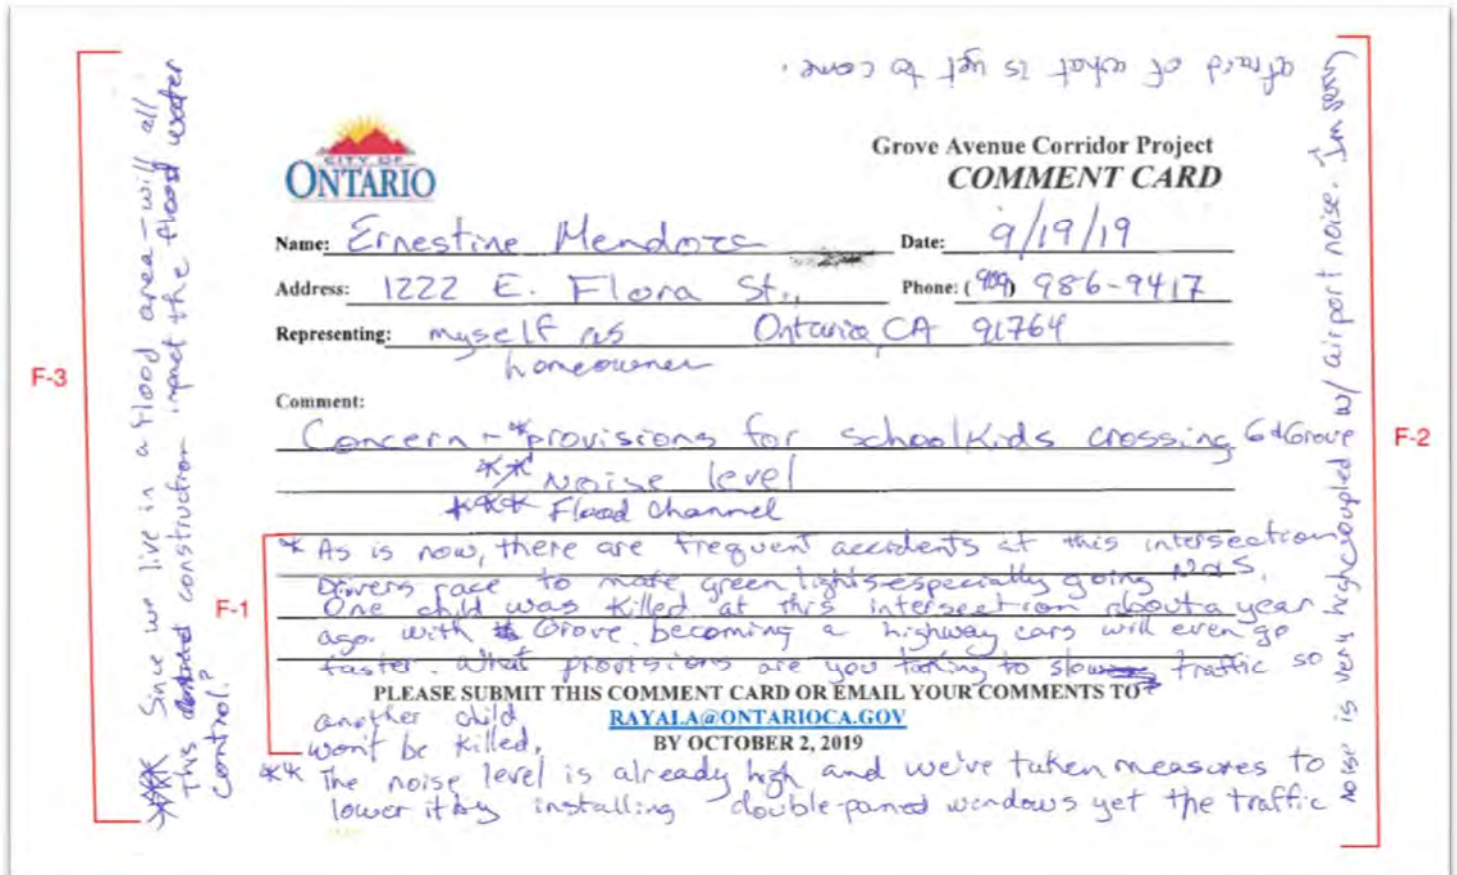 CITY OF
ONTARIO
Grove Avenue Corridor Project
COMMENT CARD
Name: Ernestine Mendoza
Date: 9/19/19
Address: 1222 E. Flora St.,
Phone: (909) 986-9417
Representing: myself as Ontario, CA 91764
homeowner
Comment:
Concern - *provisions for schoolkids crossing 6th & Grove
** Noise level
*** Flood Channel
* As is now, there are frequent accidents at this intersection
Drivers race to make green lights especially going N & S.
One child was killed at this intersection about a year
ago. with Grove becoming a highway cars will even go
faster. What provisions are you taking to slow traffic so
PLEASE SUBMIT THIS COMMENT CARD OR EMAIL YOUR COMMENTS TO
another child
RAYALA@ONTARIOCA.GOV
won't be killed.
BY OCTOBER 2, 2019
** The noise level is already high and we've taken measures to
lower it by installing double-paned windows yet the traffic
noise is very high coupled w/ airport noise. Im
afraid of what is yet to come.
*** Since we live in a flood area - will all
This construction impact the flood water
control?
F-1
F-2
F-3